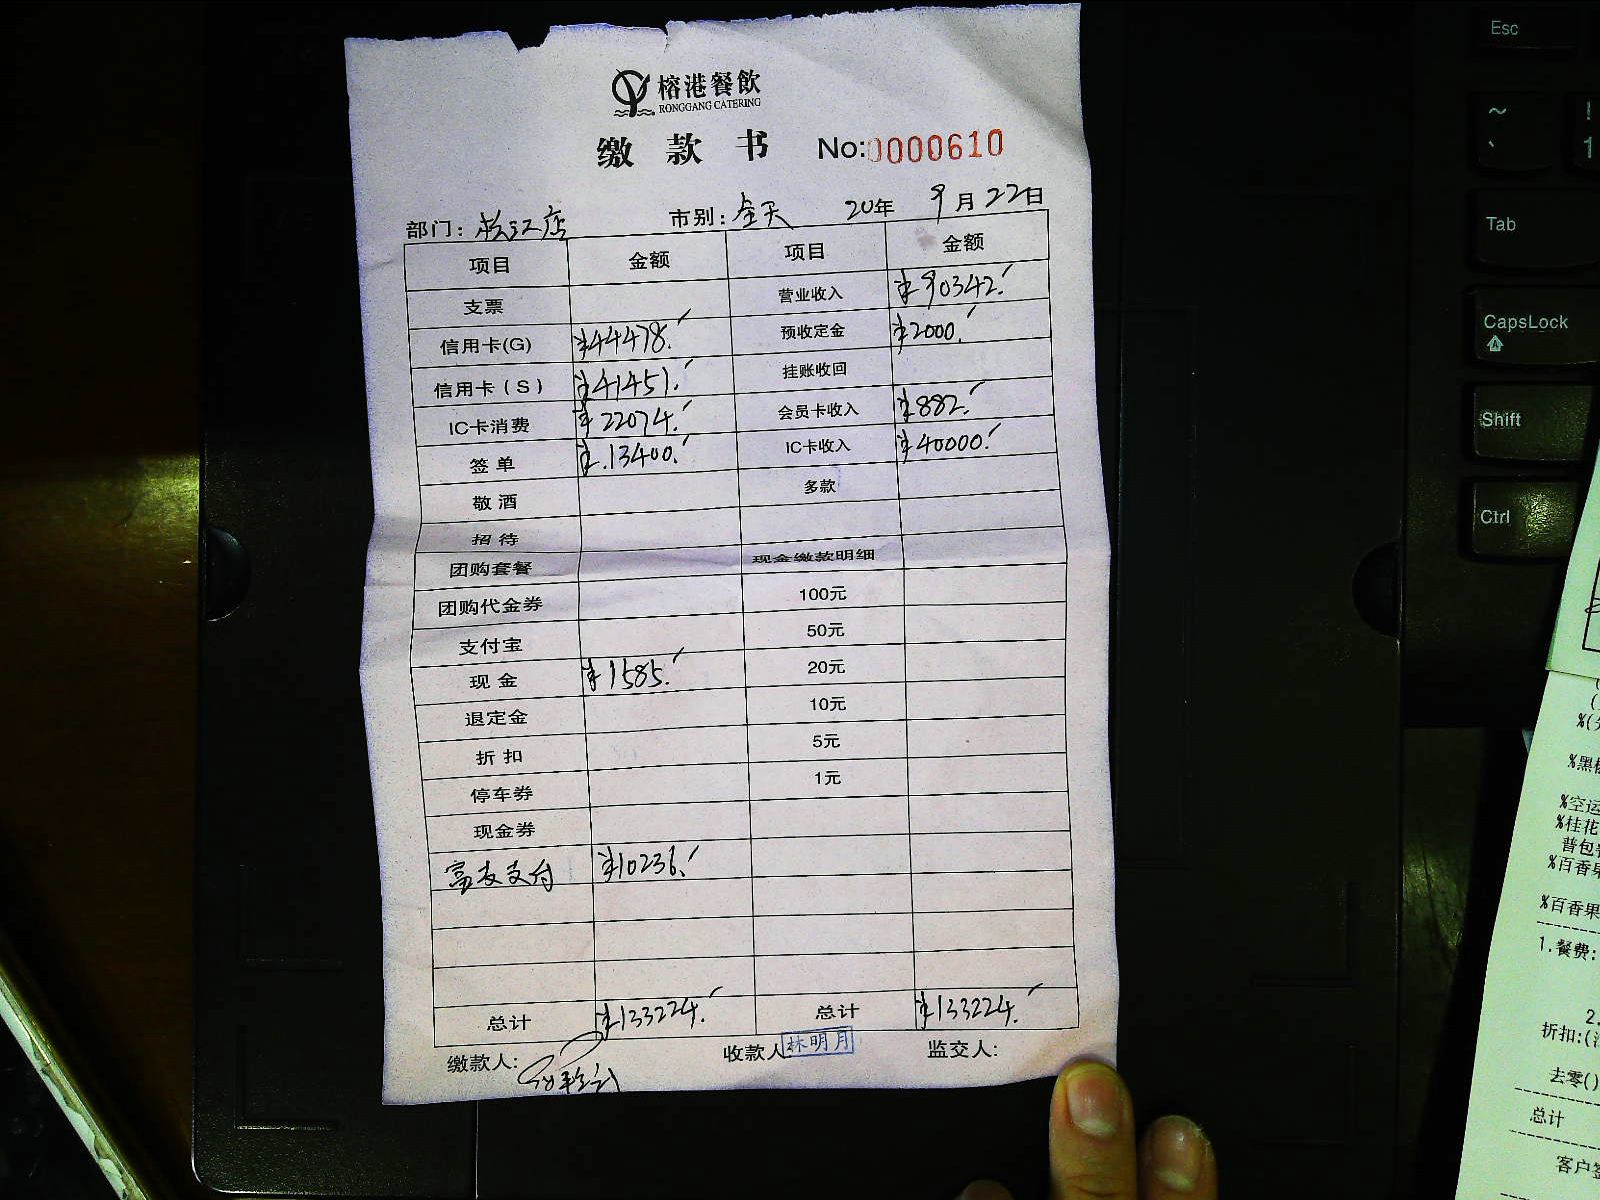 榕港餐飲
RONGGANG CATERING
缴款书 No:0000610
部门：松江店 市别：全天 20年 9月22日
项目 金额 项目 金额
支票 营业收入 ¥90342.
信用卡(G) ¥44478. 预收定金 ¥2000.
信用卡(S) ¥41451. 挂账收回
IC卡消费 ¥22074. 会员卡收入 ¥882.
签单 ¥13400. IC卡收入 ¥40000.
敬酒 多款
招待
团购套餐 现金缴款明细
团购代金券 100元
支付宝 50元
现金 ¥1585. 20元
退定金 10元
折扣 5元
停车券 1元
现金券
富友支付 ¥10236.
总计 ¥133224. 总计 ¥133224.
缴款人: 收款人 林明月 监交人:
Esc
~
、
!
1
Tab
CapsLock
Shift
Ctrl
%空运
%桂花
普包
%百香果
%百香果
1.餐费:
2.
折扣:(
去零()
总计
客户签